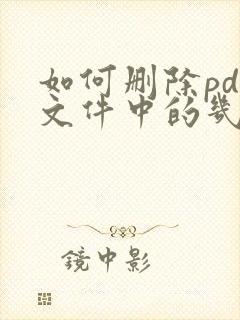 如何删除pd
文件中的几
鏡中影